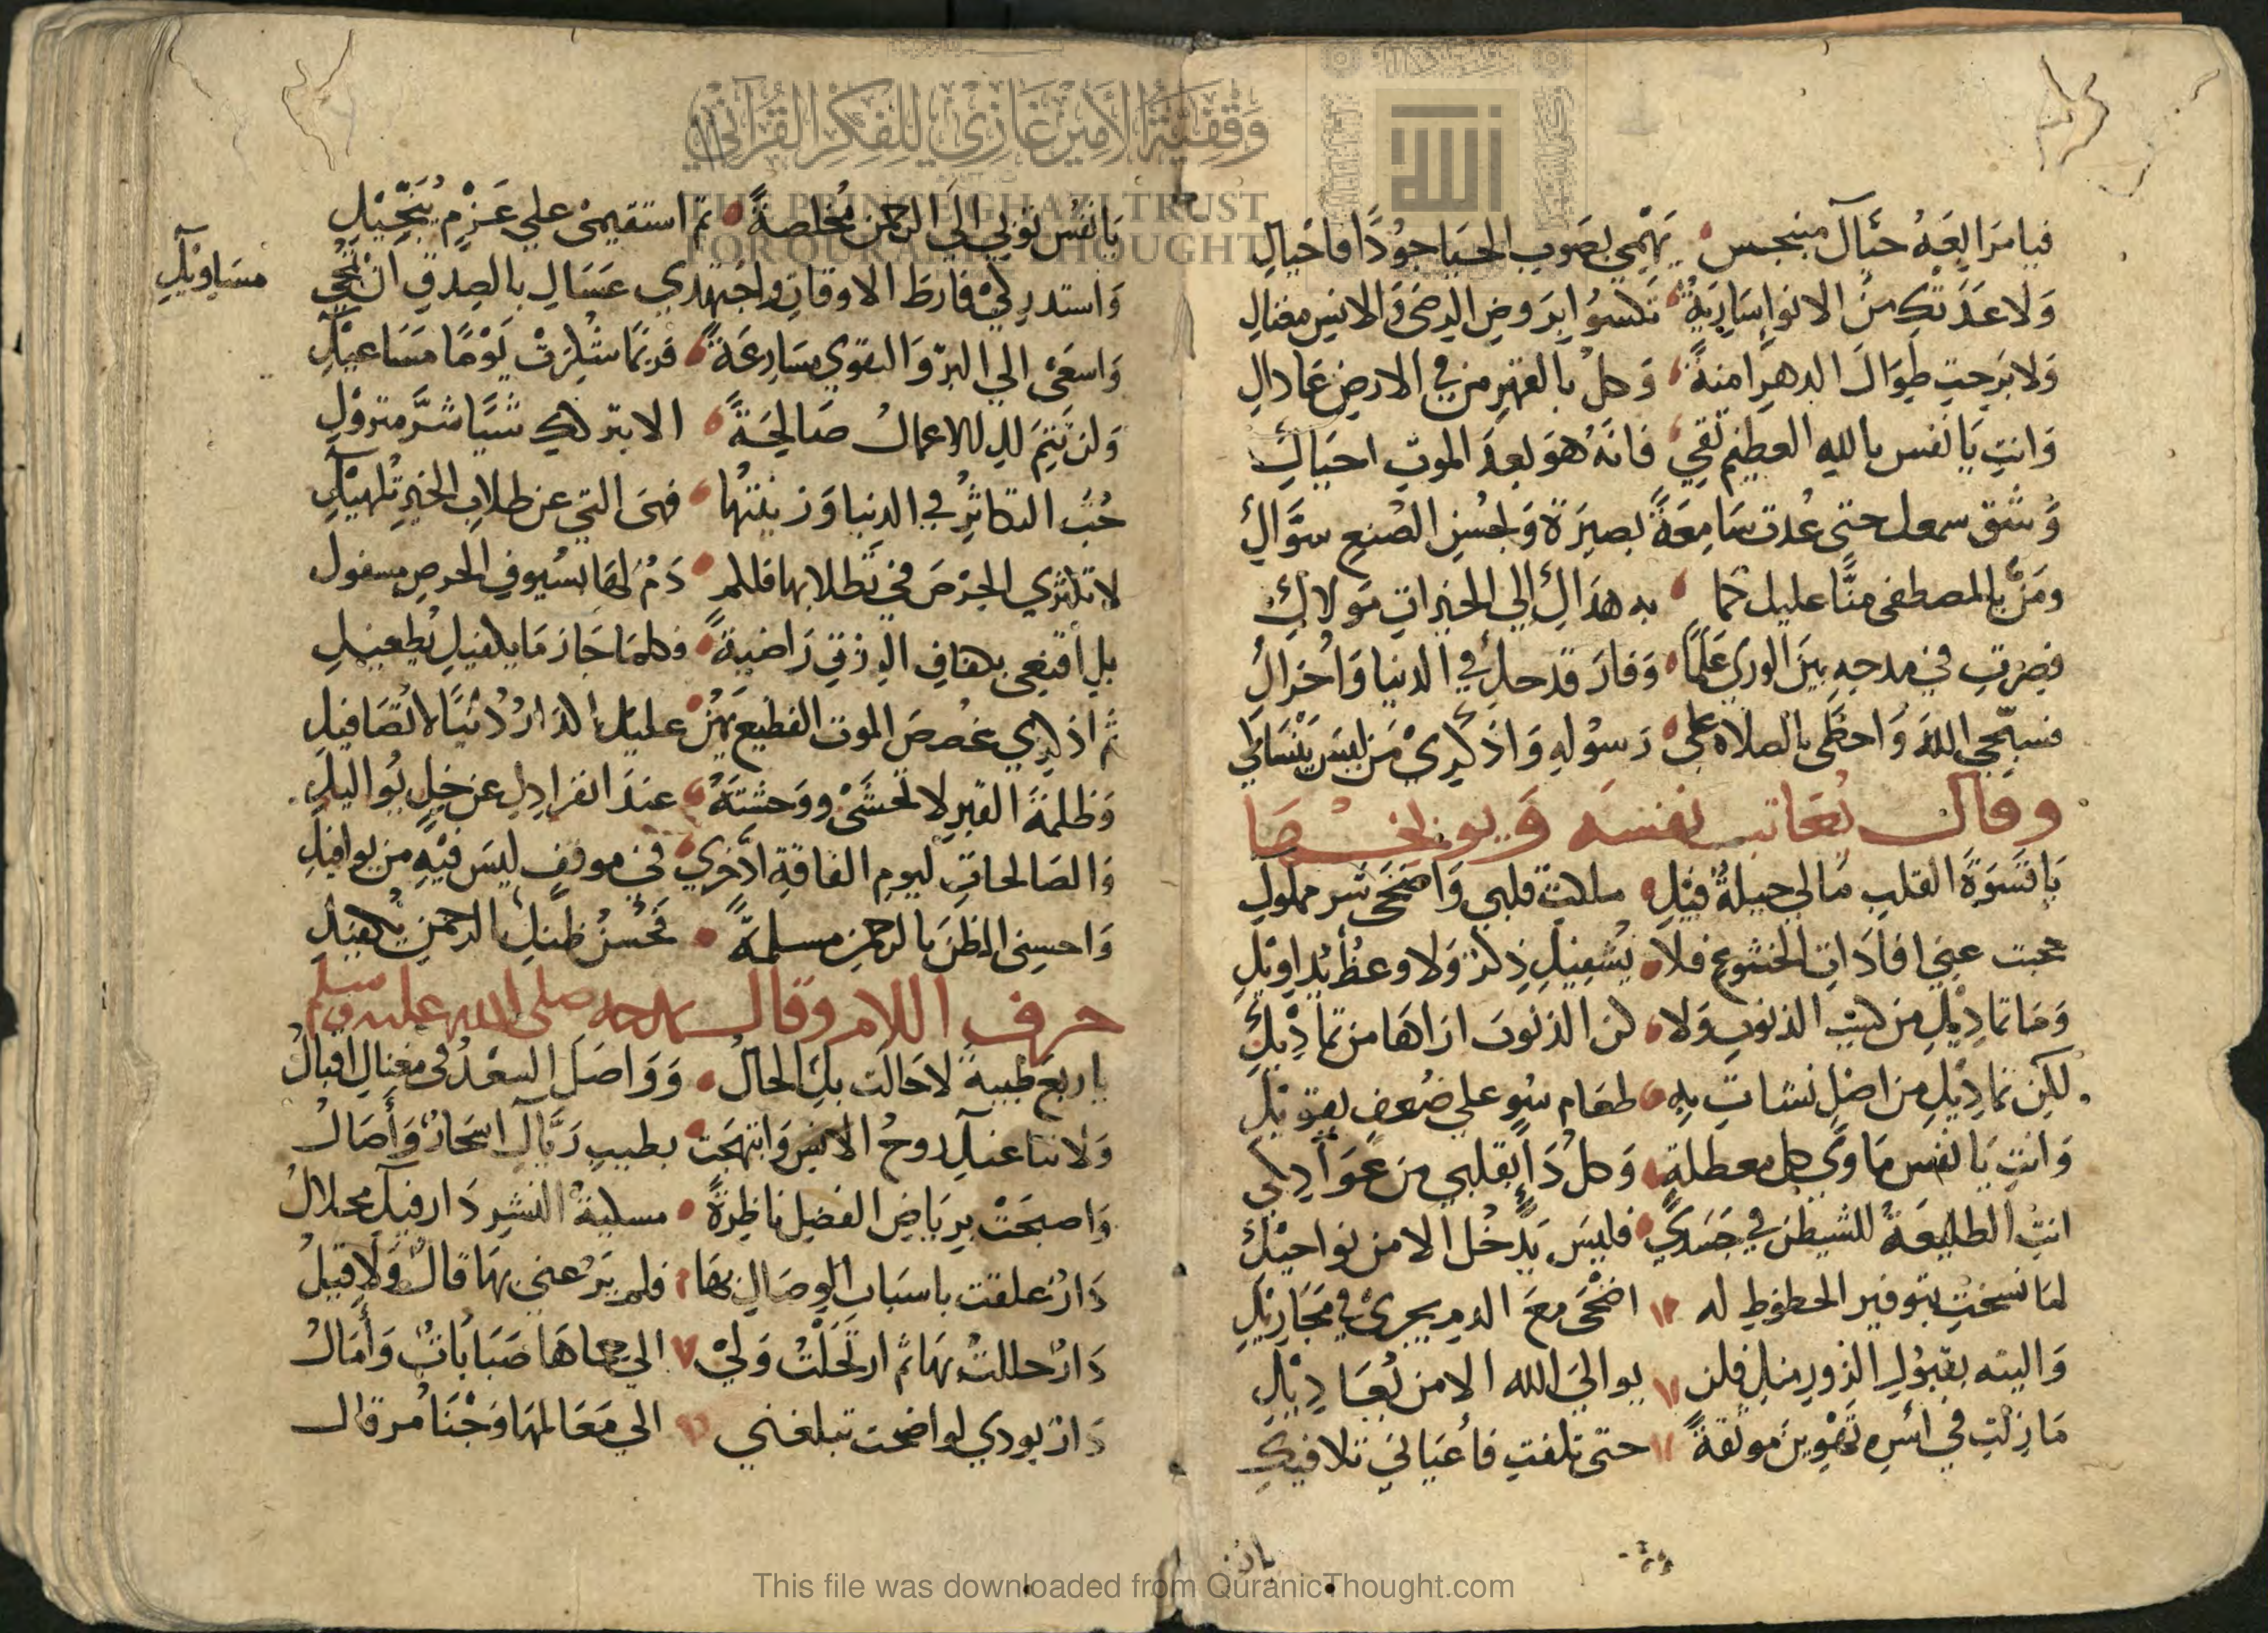 فيا مرابعه حيّاك منبجس يهمي بصوب الحيا جودا فاحياكِ
ولا عدتك من الانواء سارية تكسو ابروض الرضى والانس مغناكِ
ولا برحت طوال الدهر امنة وكل بالقهر من في الارض عاداكِ
وانتِ يا نفس بالله العظيم ثقي فانه هو بعد الموت احياكِ
وشق سمعك حتى عدت سامعة بصيرة وبحسن الصنع سوّاكِ
ومنّ بالمصطفى منّا عليك كما به هداكِ الى الخيرات مولاكِ
فصرتِ في مدحه بين الورى علما وفاز قدحك في الدنيا واخراكِ
فسبّحي الله واحظي بالصلاة على رسوله واذكري من ليس ينساكي
وقال يعاتب نفسه ويوبخها
يا قسوة القلب مالي حيلة فيكِ ملكت قلبي واضحى شر مملوكِ
حجبت عني افادات الخشوع فلا يشفيكِ ذكر ولا وعظ يداويكِ
وما تماديك من كسب الذنوب ولا كن الذنوب اراها من تماديكِ
لكن تماديك من اصل نشات به طعام سوء على ضعف يقويكِ
وانتِ يا نفس ماوى كل معطلة وكل داء بقلبي من عواديكي
انتِ الطليعة للشيطن في جسدي فليس يدخل الا من نواحيكِ
لما نسخت بتوفير الحظوظ له اضحى مع الدم يجري في مجاريكِ
واليته بقبول الزور منك فلن يوالي الله الا من يعاديكِ
ما زلتِ في اسره تهوين موثقة حتى تلفتِ فأعياني تلافيكِ
يا نفس توبي الى الرحمن مخلصة ثم استقيمي على عزم ينجّيكِ
واستدركي فارط الاوقات واجتهدي عساك بالصدق ان تمحي
مساويكِ
واسعي الى البر والتقوى مسارعة فربما شكرت يوما مساعيكِ
ولن تتم لك الاعمال صالحة الا بتركك شيا شر متروكِ
حب التكاثر في الدنيا وزينتها فهى التي عن طلاب الخير تلهيكِ
لا تكثري الحرص في تطلابها فلكم دم لها بسيوف الحرص مسفوك
بل اقنعي بكفاف الرزق راضية فكلما جاز ما يكفيكِ يطغيكِ
ثم اذكري غصص الموت الفظيع يهن عليك اكدار دنيا لا تصافيكِ
وظلمة القبر لا تخشي ووحشته عند انفرادك عن خل يواليكِ
والصالحات ليوم الفاقة ادّخري في موقف ليس فيه من يوافيكِ
واحسني الظن بالرحمن مسلمة فحسن ظنك بالرحمن يكفيكِ
حرف اللام وقال يمدحه صلى الله عليه وسلم
يا ربع طيبة لا حالت بك الحال وواصل السعد في مغناك اقبال
ولا نئا عنك روح الانس وابتهجت بطيب ريّاك اسحار وأصال
واصبحت برياض الفضل ناظرة مسكية النشر دار فيك محلال
دار علقت باسباب الوصال بها فلم يرعني بها قال ولا قيل
دار حللت بها ثم ارتحلت ولي الى حماها صبابات وأمال
دار بودي لو اضحت تبلغني الى معالمها وجنا مرقال
يا نفس
This file was downloaded from QuranicThought.com
وقفية الأمير غازي للفكر القرآني
THE PRINCE GHAZI TRUST
FOR QURANIC THOUGHT
الله